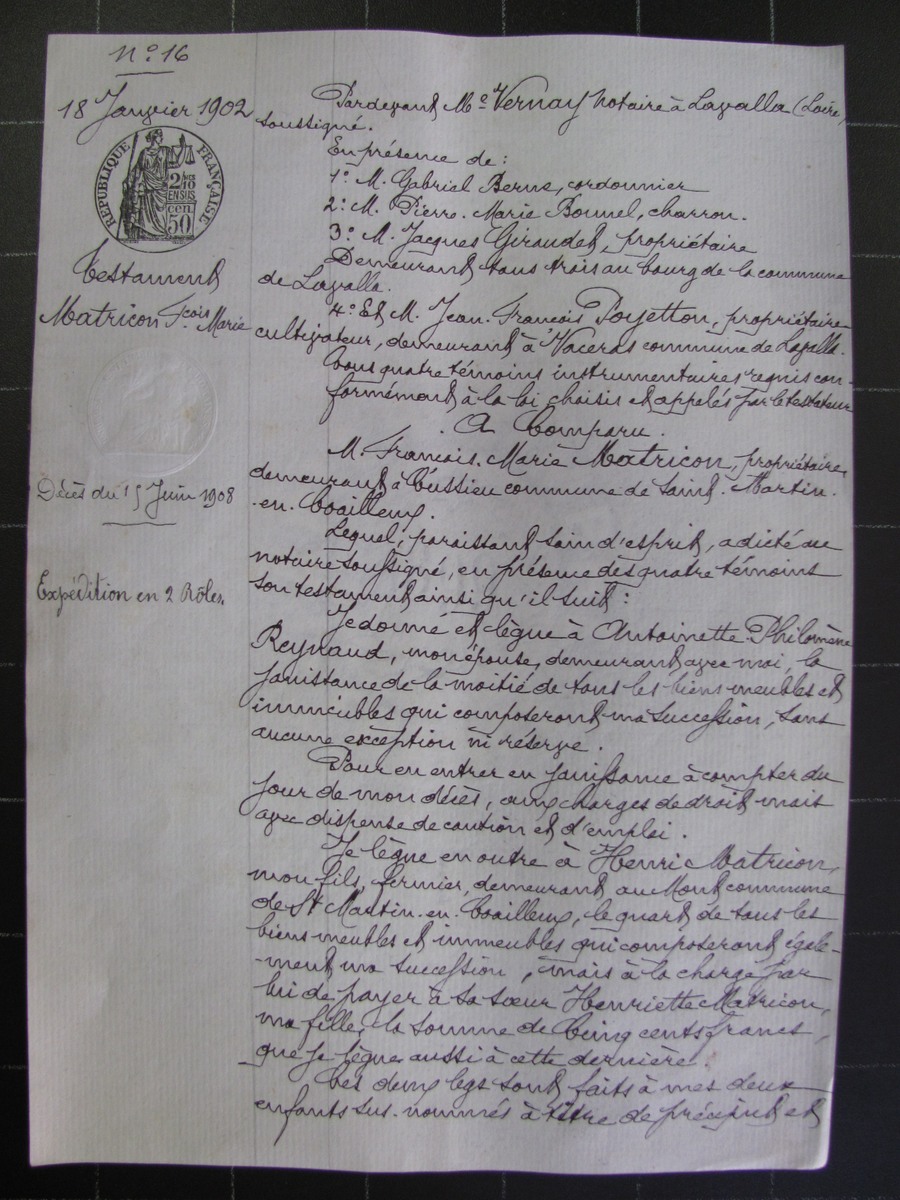 N° 16
18 Janvier 1902
RÉPUBLIQUE FRANÇAISE
2/10
EN SUS
50 cen
Testament
Matricon Fcois Marie
Décès du 15 Juin 1908
Expédition en 2 Rôles.
Pardevant Me Vernay notaire à Lavalla (Loire,
soussigné.
En présence de :
1° M. Gabriel Berne, cordonnier
2° M. Pierre-Marie Bonnel, charron.
3° M. Jacques Giraudet, propriétaire
Demeurant tous trois au bourg de la commune
de Lavalla.
4° Et M. Jean-François Poyetton, propriétaire
cultivateur, demeurant à Vaceras commune de Lavalla.
Tous quatre témoins instrumentaires requis con-
formément à la loi choisis et appelés par le testateur
A Comparu.
M. François-Marie Matricon, propriétaire,
demeurant à commune de Saint-Martin-
-en-Coailleux.
Lequel, paraissant sain d'esprit, a dicté au
notaire soussigné, en présence des quatre témoins
son testament ainsi qu'il suit :
Je donne et lègue à Antoinette Philomène
Reynaud, mon épouse, demeurant avec moi, la
jouissance de la moitié de tous les biens meubles et
immeubles qui composeront ma succession, sans
aucune exception ni réserve.
Pour en entrer en jouissance à compter du
jour de mon décès, aux charges de droit mais
avec dispense de caution et d'emploi.
Je lègue en outre à Henri Matricon,
mon fils, fermier, demeurant au Mont commune
de St Martin-en-Coailleux, le quart de tous les
biens meubles et immeubles qui composeront égale-
-ment ma succession, mais à la charge par
lui de payer à sa sœur Henriette Matricon,
ma fille, la somme de Cinq cents francs,
que je lègue aussi à cette dernière.
Ces deux legs sont faits à mes deux
enfants sus-nommés à titre de préciput et